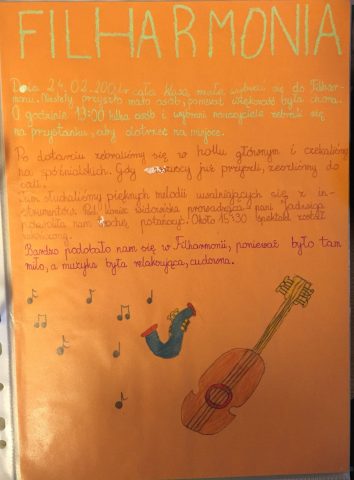 FILHARMONIA
Dnia 24.02.200 r cała klasa miała wybrać się do Filhar-
monii. Niestety przyszło mało osób, ponieważ większość była chora.
O godzinie 13:00 kilka osób i wybrani nauczyciele zebrali się
na przystanku, aby dotrzeć na miejsce.
Po dotarciu zebraliśmy się w hollu głównym i czekaliśmy
na spóźnialskich. Gdy wszyscy już przyszli, zeszliśmy do
sali.
Tam słuchaliśmy pięknych melodii uwalniających się z in-
strumentów. Pod koniec widowiska prowadząca pani Jadwiga
pozwoliła nam trochę potańczyć. Około 15:30 spektakl został
zakończony.
Bardzo podobało nam się w Filharmonii, ponieważ było tam
miło, a muzyka była relaksująca, cudowna.